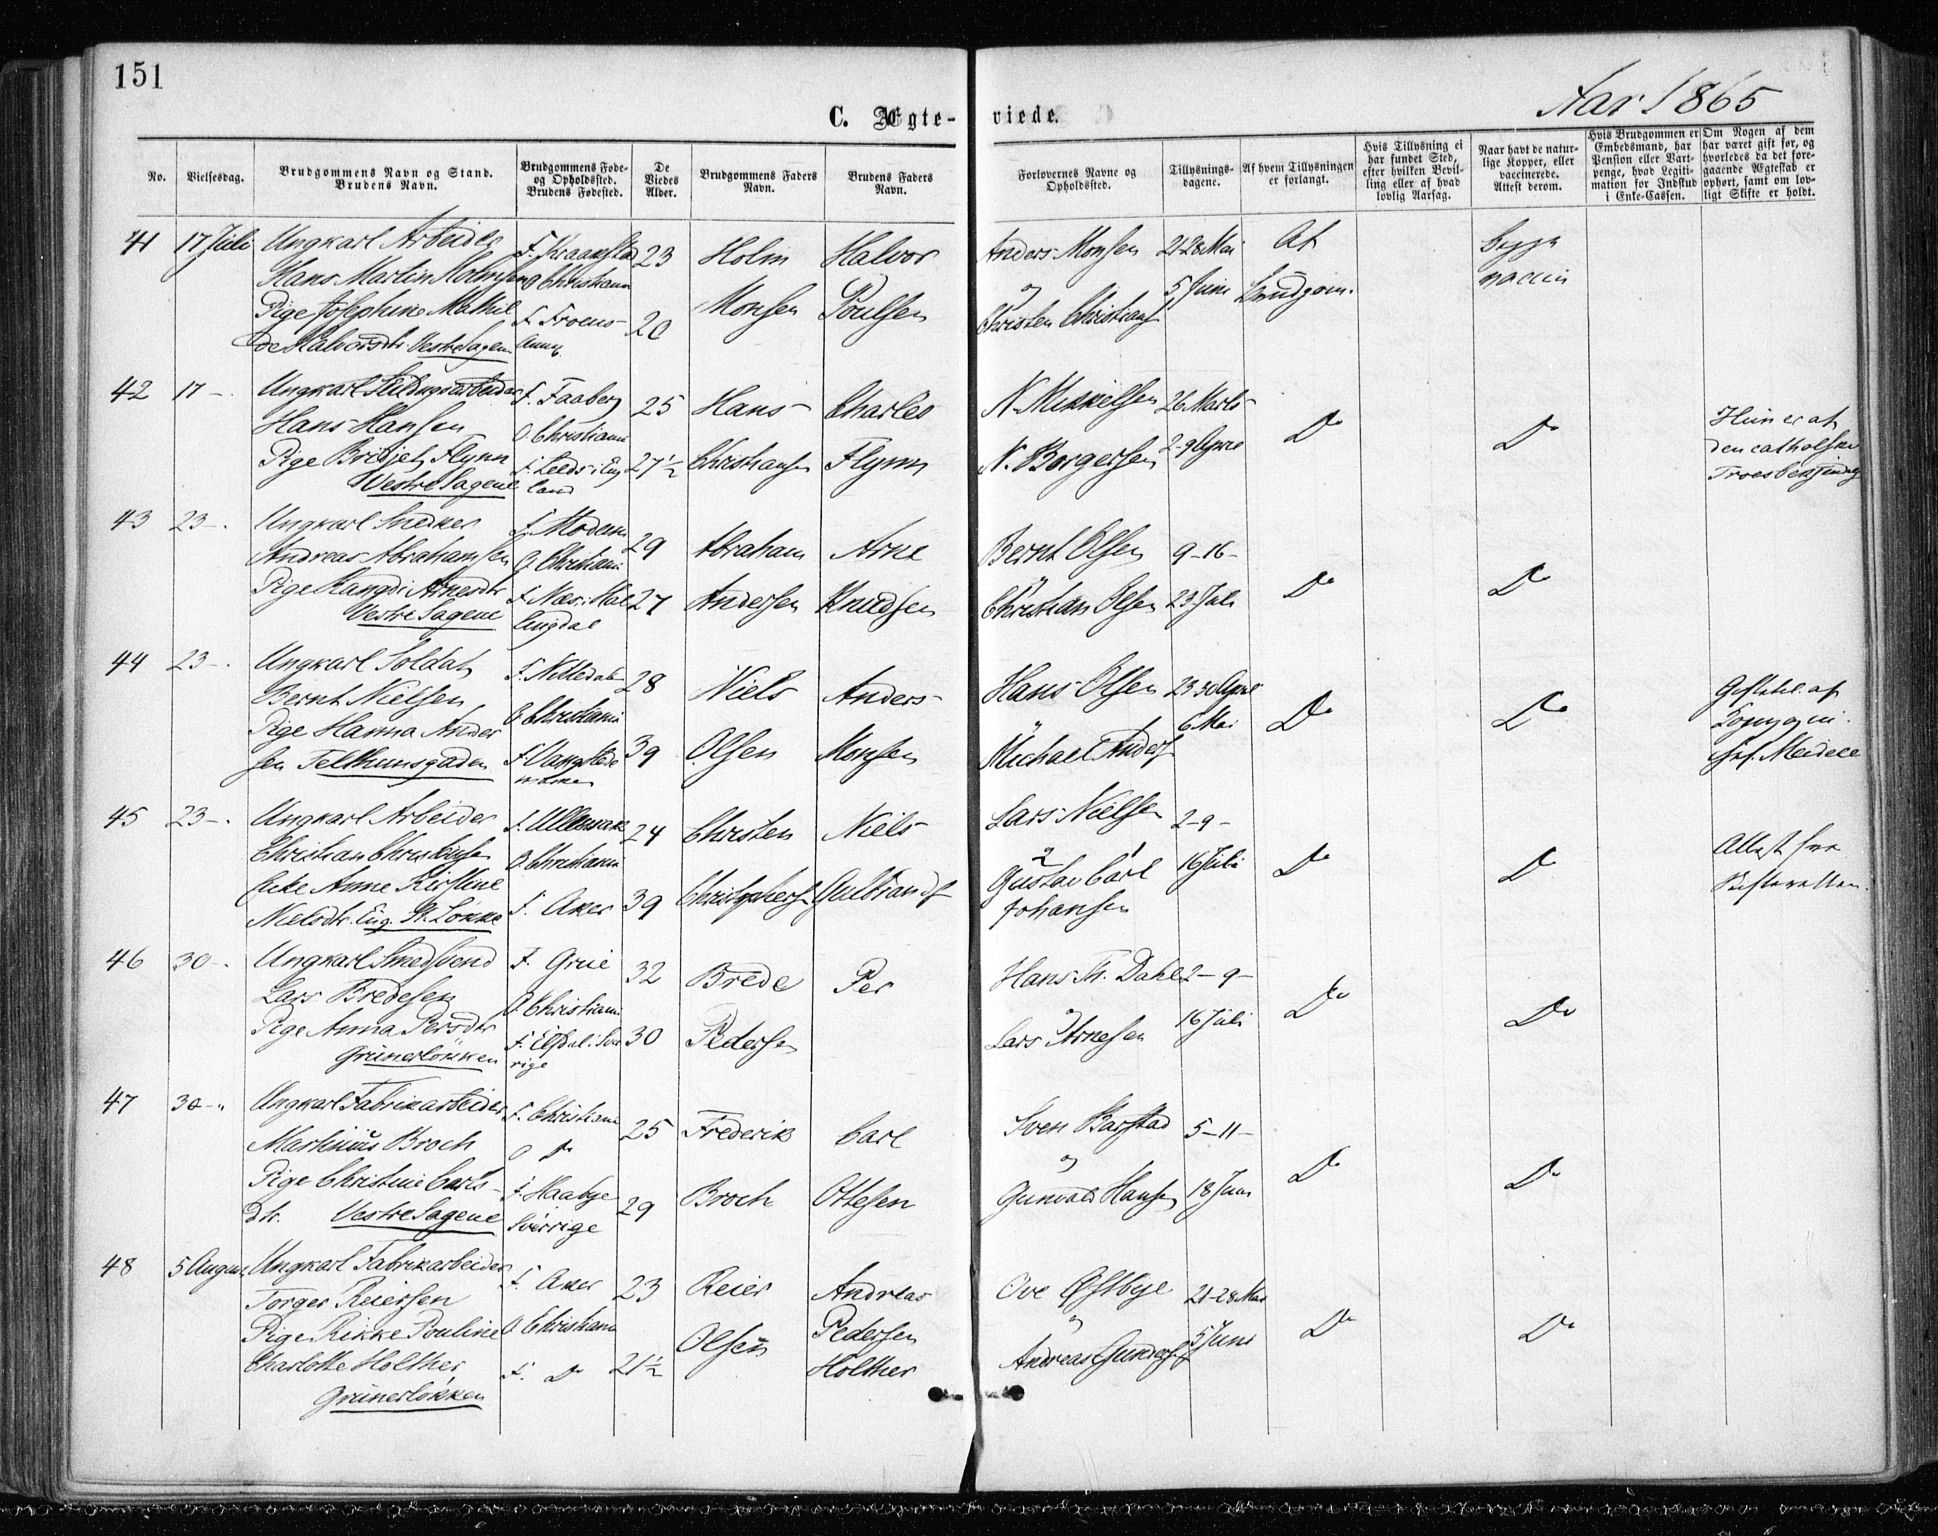 151
Aar 1865
C. Ægte-
viede.
No.
Vielsesdag.
Brudgommens Navn og Stand.
Brudens Navn.
Brudgommens Føde-
og Opholdssted.
Brudens Fødested.
De
Viedes
Alder.
Brudgommens Faders
Navn.
Brudens Faders
Navn.
Forlovernes Navne og
Opholdssted.
Tillysnings-
dagene.
Af hvem Tillysningen
er forlangt.
Hvis Tillysning ei
har fundet Sted,
efter hvilken Bevil-
ling eller af hvad
lovlig Aarsag.
Naar havt de natur-
lige Kopper, eller
vaccinerede.
Attest derom.
Hvis Brudgommen er
Embedsmand, har
Pension eller Vart-
penge, hvad Legiti-
mation for Indskud
i Enke-Cassen.
Om Nogen af dem
har været gift før, og
hvorledes da det fore-
gaaende Ægteskab er
ophørt, samt om lov-
ligt Skifte er holdt.
41 17 Juli Ungkarl Arbeider
Hans Martin Holmsen
Pige Josephine Mathil
de Halvorsdtr. Vestre Sagene
F. Kraakstad
O Christiania
F.
23
20
Holm
Monsen
Halvor
Poulsen
Anders Monsen
og
Christen Christians
21-28 Mai
5 Juni
Af
Brudgom.
begge
vaccin
42 17 -
Hans Hansen
Pige Bridjet Flynn
Vestre Sagene
F. Faaberg
O. Christiania
F. Leeds i Eng
land
25
27½
Hans
Christiansen
Charles
Flynn
N. Mikkelsen
N. Borgersen
26 Marts
2-9 April
Do
Do
Hun er af
den catholske
Troesbekjendelse
43 23 - Ungkarl Snedker
Andreas Abrahamsen
Pige Rangdi Arnesdtr
Vestre Sagene
F. Modum
O Christiania
F. Næs i Hal
lingdal
29
27
Abraham
Andersen
Arne
Knudsen
Bernt Olsen
Christian Olsen
9-16-
23 Juli
Do
Do
44 23 - Ungkarl Soldat
Bernt Nielsen
Pige Hanna Ander
sen Telthuusgaden
F. Nittedal
O. Christiania
28
39
Niels
Olsen
Anders
Monsen
Hans Olsen
Michael Anders
23 30 April
6 Mai
Do
Do
45 23 - Ungkarl Arbeider
Christian Christensen
Enke Anne Kirstine
Nielsdtr. Eng St. Løkke
F. Ullensaker
O. Christiania
F. Aker
24
39
Christen
Christophers
Niels
Gulbrands
Lars Nielsen
og
Gustav Carl
Johansen
2-9-
16 Juli
Do
Do
Attest fra
Skifteretten.
46 30 - Ungkarl Smedsvend
Lars Bredesen
Pige Anna Persdtr
Grünerløkken
F. Grue
O. Christiania
F. Elfdal i Sve
rige
32
30
Brede
Pedersen
Per
Hans Th. Dahl
og
Lars Arnesen
2-9-
16 Juli
Do
Do
47 30 - Ungkarl Fabrikarbeider
Martinius Broch
Pige Christine Carls-
dtr. Vestre Sagene
F. Christiania
O Do
F. Haabye
Sverrige
25
29
Frederik
Broch
Carl
Ottesen
Sven Barstad
og
Gunvald Hansen
5-11-
18 Juni
Do
Do
48 5 August Ungkarl Fabrikarbeider
Torger Reiersen
Pige Rikke Pouline
Charlotte Holther
Grünerløkken
F. Aker
O Christiania
F. Do
23
21½
Reier
Olsen
Andreas
Pedersen
Holther
Ove Østbye
og
Andreas Gunders
21-28 Mai
5 Juni
Do
Do